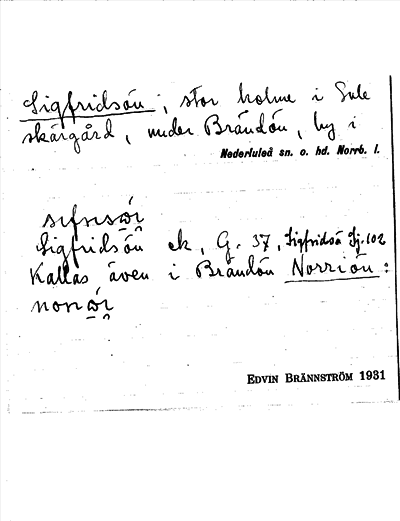 Sigfridsön; stor holme i Lule
skärgård, under Brändön, by i
Nederluleå sn. o. hd. Norrb. l.
Sigfridsön ek, G. 37, Sigfridsö Sj. 102
Kallas även i Brändön Norriön:
EDVIN BRÄNNSTRÖM 1931